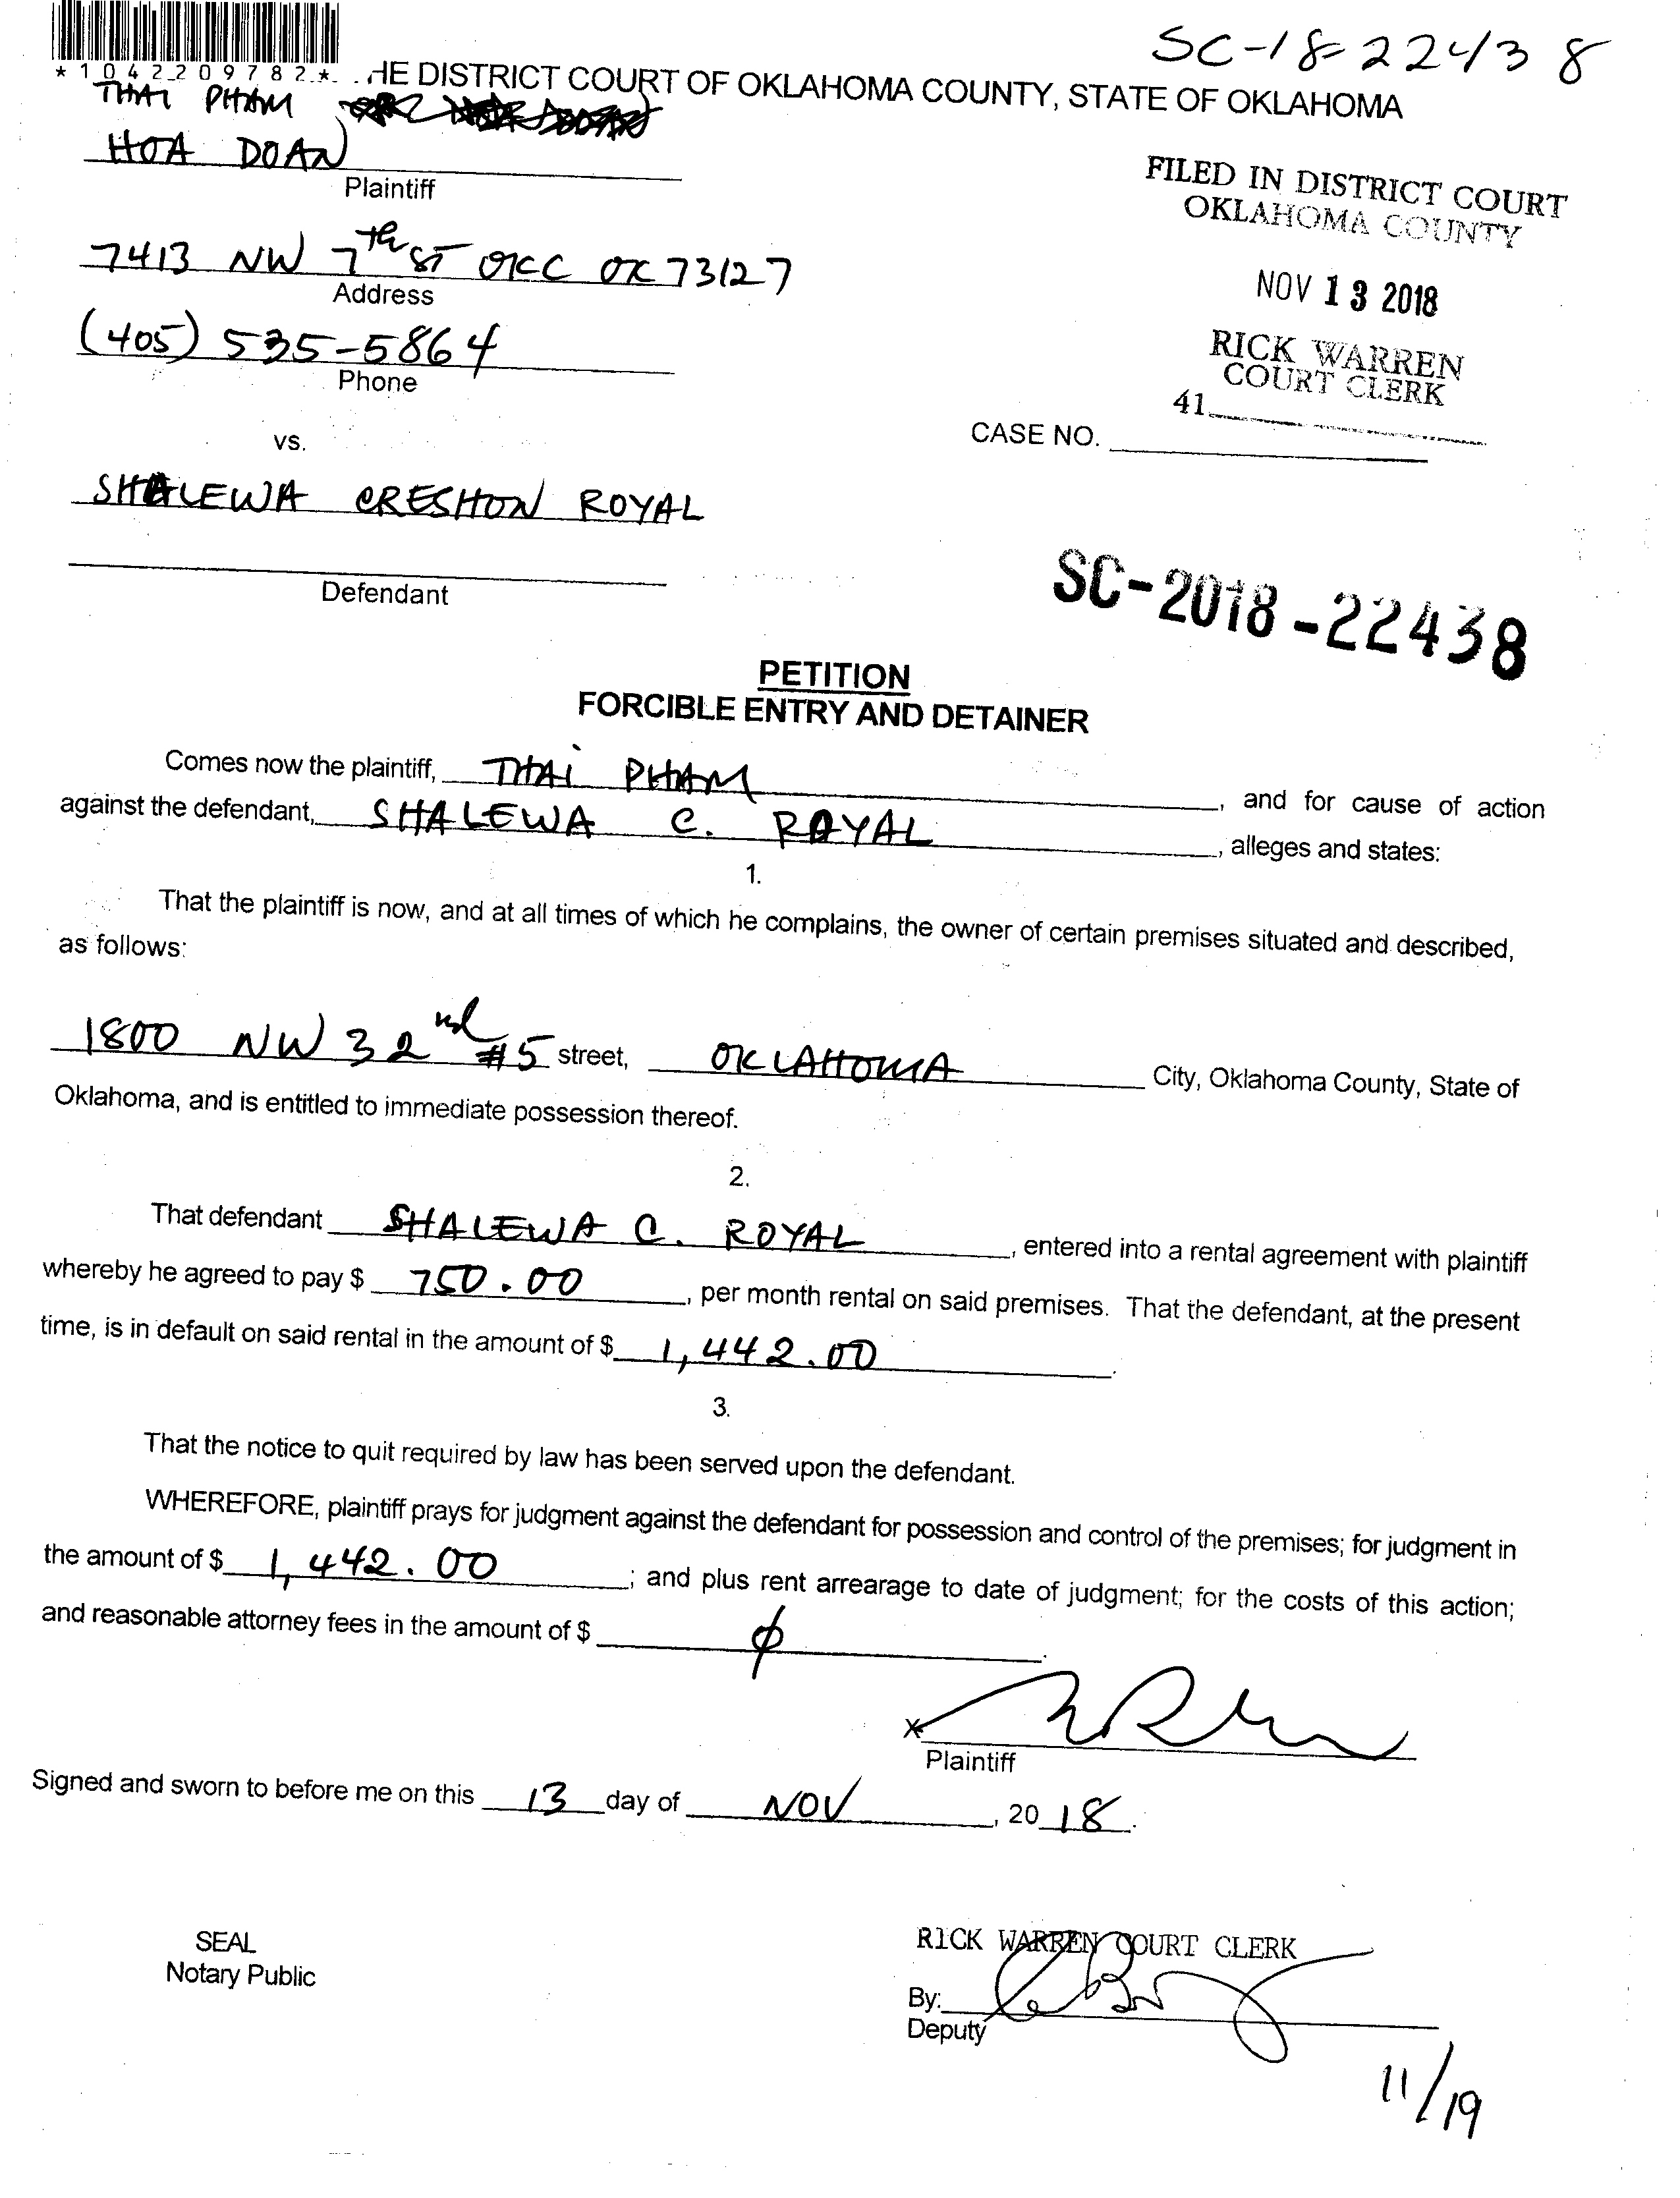 SC-18-22438
*1042209782*
HE DISTRICT COURT OF OKLAHOMA COUNTY, STATE OF OKLAHOMA
THAI PHAM
HOA DOAN
Plaintiff
FILED IN DISTRICT COURT
OKLAHOMA COUNTY
7413 NW 7th ST OKC OK 73127
Address
NOV 13 2018
(405) 535-5864
Phone
RICK WARREN
COURT CLERK
41
vs.
CASE NO.
SHALEWA CRESHON ROYAL
Defendant
SC-2018-22438
PETITION
FORCIBLE ENTRY AND DETAINER
Comes now the plaintiff, THAI PHAM, and for cause of action
against the defendant, SHALEWA C. ROYAL, alleges and states:
1.
That the plaintiff is now, and at all times of which he complains, the owner of certain premises situated and described,
as follows:
1800 NW 32nd #5 street, OKLAHOMA City, Oklahoma County, State of
Oklahoma, and is entitled to immediate possession thereof.
2.
That defendant SHALEWA C. ROYAL, entered into a rental agreement with plaintiff
whereby he agreed to pay $ 750.00, per month rental on said premises. That the defendant, at the present
time, is in default on said rental in the amount of $ 1,442.00.
3.
That the notice to quit required by law has been served upon the defendant.
WHEREFORE, plaintiff prays for judgment against the defendant for possession and control of the premises; for judgment in
the amount of $ 1,442.00; and plus rent arrearage to date of judgment; for the costs of this action;
and reasonable attorney fees in the amount of $ ϕ.
X
Plaintiff
Signed and sworn to before me on this 13 day of NOV, 2018.
SEAL
Notary Public
RICK WARREN COURT CLERK
By:
Deputy
11/19